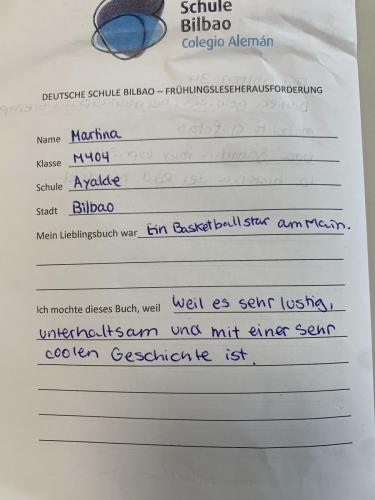 Schule
Bilbao
Colegio Alemán
DEUTSCHE SCHULE BILBAO – FRÜHLINGSLESEHERAUSFORDERUNG
Name Martina
Klasse M404
Schule Ayalde
Stadt Bilbao
Mein Lieblingsbuch war Ein Basketballstar am Main.
Ich mochte dieses Buch, weil weil es sehr lustig,
unterhaltsam und mit einer sehr
coolen Geschichte ist.